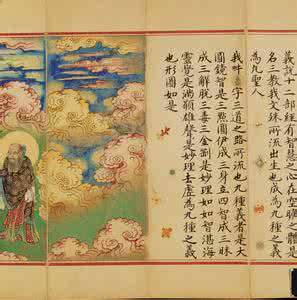 義說十二部經有智慧之心在空之體是
名三教我文殊所流出生也成九種
為九聖人
我吽字三道之路所流也九種義者是大
圓鏡智是三點圓伊成三身立四智成三昧
成三解脫三毒三金剛是妙理如如智湛海
靈覺是滿願雄聲是妙理虛為九種之義
也形圖如是